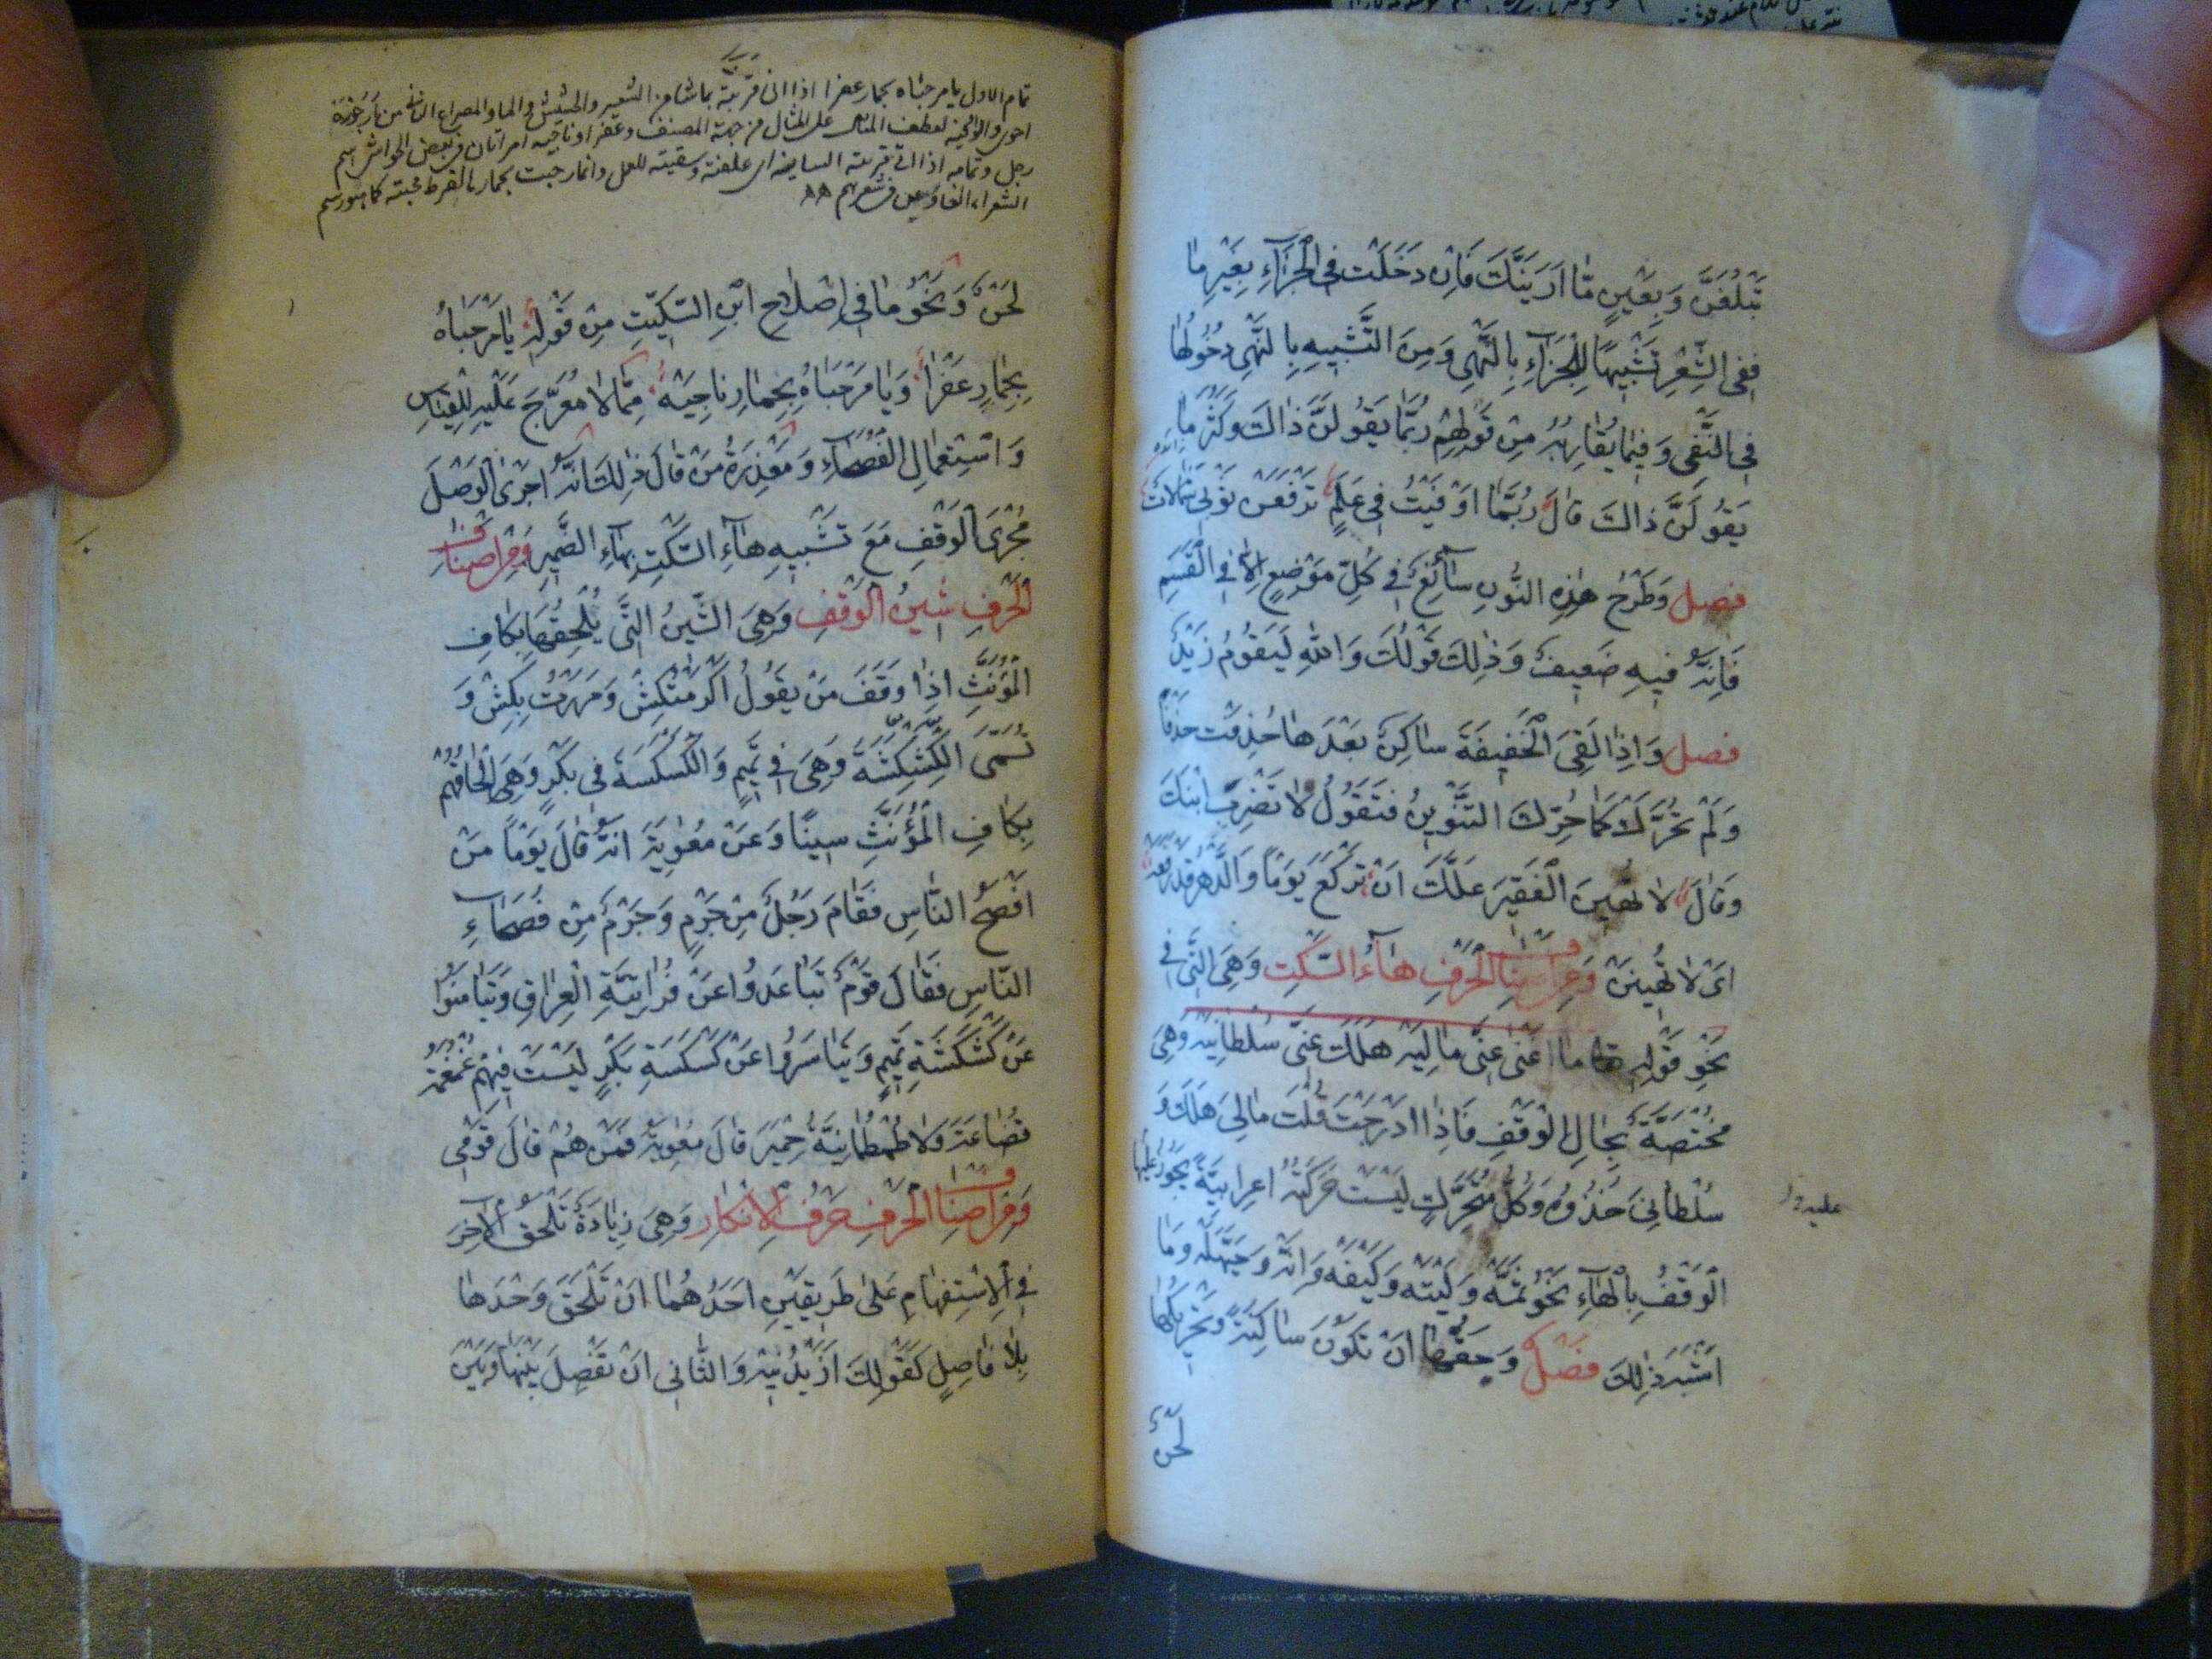 تَبْلُغَنَّ وَبِعَيْنٍ مَّا اَرَيَنَّكَ فَاِنْ دَخَلَتْ فِى الْجَزَآءِ بِغَيْرِ مَا
فَفِى الشِّعْرِ تَشْبِيهًا لِلْجَزَآءِ بِالنَّهْىِ وَمِنَ التَّشْبِيهِ بِالنَّهْىِ دُخُولُهَا
فِى النَّفْىِ وَفِيمَا يُقَارِبُهُ مِنْ قَوْلِهِمْ رُبَّمَا يَقُولَنَّ ذَاكَ وَكَثُرَ مَا
يَقُولَنَّ ذَاكَ قَالَ رُبَّمَا اَوْفَيْتُ فِى عَلَمٍ تَرْفَعَنْ ثَوْبِى شَمَالَاتُ
فصل وَطَرْحُ هٰذِهِ النُّونِ سَائِغٌ فِى كُلِّ مَوْضِعٍ اِلَّا فِى الْقَسَمِ
فَاِنَّهُ فِيهِ ضَعِيفٌ وَذٰلِكَ قَوْلُكَ وَاللهِ لَيَقُومُ زَيْدٌ
فصل وَاِذَا لَقِىَ الْخَفِيفَةَ سَاكِنٌ بَعْدَهَا حُذِفَتْ حَذْفًا
وَلَمْ تُحَرَّكْ كَمَا حُرِّكَ التَّنْوِينُ فَتَقُولُ لَا تَضْرِبَ ابْنَكَ
وَقَالَ لَا تُهِينَ الْفَقِيرَ عَلَّكَ اَنْ تَرْكَعَ يَوْمًا وَالدَّهْرُ قَدْ رَفَعَهْ
اَىْ لَا تُهِينَنْ وَمِنْ اَصْنَافِ الْحَرْفِ هَآءُ السَّكْتِ وَهِىَ الَّتِى فِى
نَحْوِ قَوْلِهِ تعا مَا اَغْنٰى عَنِّى مَالِيَهْ هَلَكَ عَنِّى سُلْطَانِيَهْ وَهِىَ
مُخْتَصَّةٌ بِحَالِ الْوَقْفِ فَاِذَا اَدْرَجْتَ قُلْتَ مَالِىَ هَلَكَ وَ
سُلْطَانِىَ خُذُوهُ وَكُلُّ مُتَحَرِّكٍ لَيْسَتْ حَرَكَتُهُ اِعْرَابِيَّةً يَجُوزُ عَلَيْهَا
عليه
الْوَقْفُ بِالْهَآءِ نَحْوُ ثُمَّهْ وَلَيْتَهْ وَكَيْفَهْ وَاِنَّهْ وَحَيَّهَلَهْ وَمَا
اَشْبَهَ ذٰلِكَ فَصْلٌ وَحَقُّهَا اَنْ تَكُونَ سَاكِنَةً وَتَحْرِيكُهَا
لَحْنٌ
تمام الاول يا مرحباه بحمار عفرا اذا اتى قربته بماشا من الشعير والحشيش والماء والمصراع الثانى من ارجوزة
اخرى والواو لعطف المثال على المثال من جهة المصنف وعفرا وناجية امراتان فى بعض الحواشى اسم
رجل وتمامه اذا اتى قربته السانية اى علفته وسقيته للعمل وانما رحبت بحمارها لفرط محبته كما هو رسم
الشعراء فى شعرهم
لَحْنٌ وَنَحْوُ مَا فِى اِصْلَاحِ ابْنِ السِّكِّيتِ مِنْ قَوْلِهِ يَا مَرْحَبَاهُ
بِحِمَارِ عَفْرَا وَيَا مَرْحَبَاهُ بِحِمَارِ نَاجِيَهْ مِمَّا لَا مُعَرَّجَ عَلَيْهِ لِلْقِيَاسِ
وَاسْتِعْمَالِ الْفُصَحَآءِ وَمَعْذِرَةُ مَنْ قَالَ ذٰلِكَ اَنَّهُ اَجْرَى الْوَصْلَ
مُجْرَى الْوَقْفِ مَعَ تَشْبِيهِ هَآءِ السَّكْتِ بِهَآءِ الضَّمِيرِ وَمِنْ اَصْنَافِ
الْحَرْفِ شِينُ الْوَقْفِ وَهِىَ الشِّينُ الَّتِى يُلْحِقُهَا بِكَافِ
الْمُؤَنَّثِ اِذَا وَقَفَ مَنْ يَقُولُ اَكْرَمْتُكِشْ وَمَرَرْتُ بِكِشْ وَ
تُسَمَّى الْكَشْكَشَةَ وَهِىَ فِى تَمِيمٍ وَالْكَسْكَسَةَ فِى بَكْرٍ وَهِىَ اِلْحَاقُهُمْ
بِكَافِ الْمُؤَنَّثِ سِينًا وَعَنْ مُعٰوِيَةَ اَنَّهُ قَالَ يَوْمًا مَنْ
اَفْصَحُ النَّاسِ فَقَامَ رَجُلٌ مِنْ جَرْمٍ وَجَرْمٌ مِنْ فُصَحَاءِ
النَّاسِ فَقَالَ قَوْمٌ تَبَاعَدُوا عَنْ فُرَاتِيَّةِ الْعِرَاقِ وَتَيَامَنُوا
عَنْ كَشْكَشَةِ تَمِيمٍ وَتَيَاسَرُوا عَنْ كَسْكَسَةِ بَكْرٍ لَيْسَتْ فِيهِمْ غَمْغَمَةُ
قُضَاعَةَ وَلَا طُمْطُمَانِيَّةُ حِمْيَرَ قَالَ مُعٰوِيَةُ فَمَنْ هُمْ قَالَ قَوْمِى
وَمِنْ اَصْنَافِ الْحَرْفِ حَرْفُ الْاِنْكَارِ وَهِىَ زِيَادَةٌ تَلْحَقُ الْاٰخِرَ
فِى الْاِسْتِفْهَامِ عَلٰى طَرِيقَيْنِ اَحَدُهُمَا اَنْ تَلْحَقَ وَحْدَهَا
بِلَا فَاصِلٍ كَقَوْلِكَ اَزَيْدُنِيهْ وَالثَّانِى اَنْ تَفْصِلَ بَيْنَهَا وَبَيْنَ